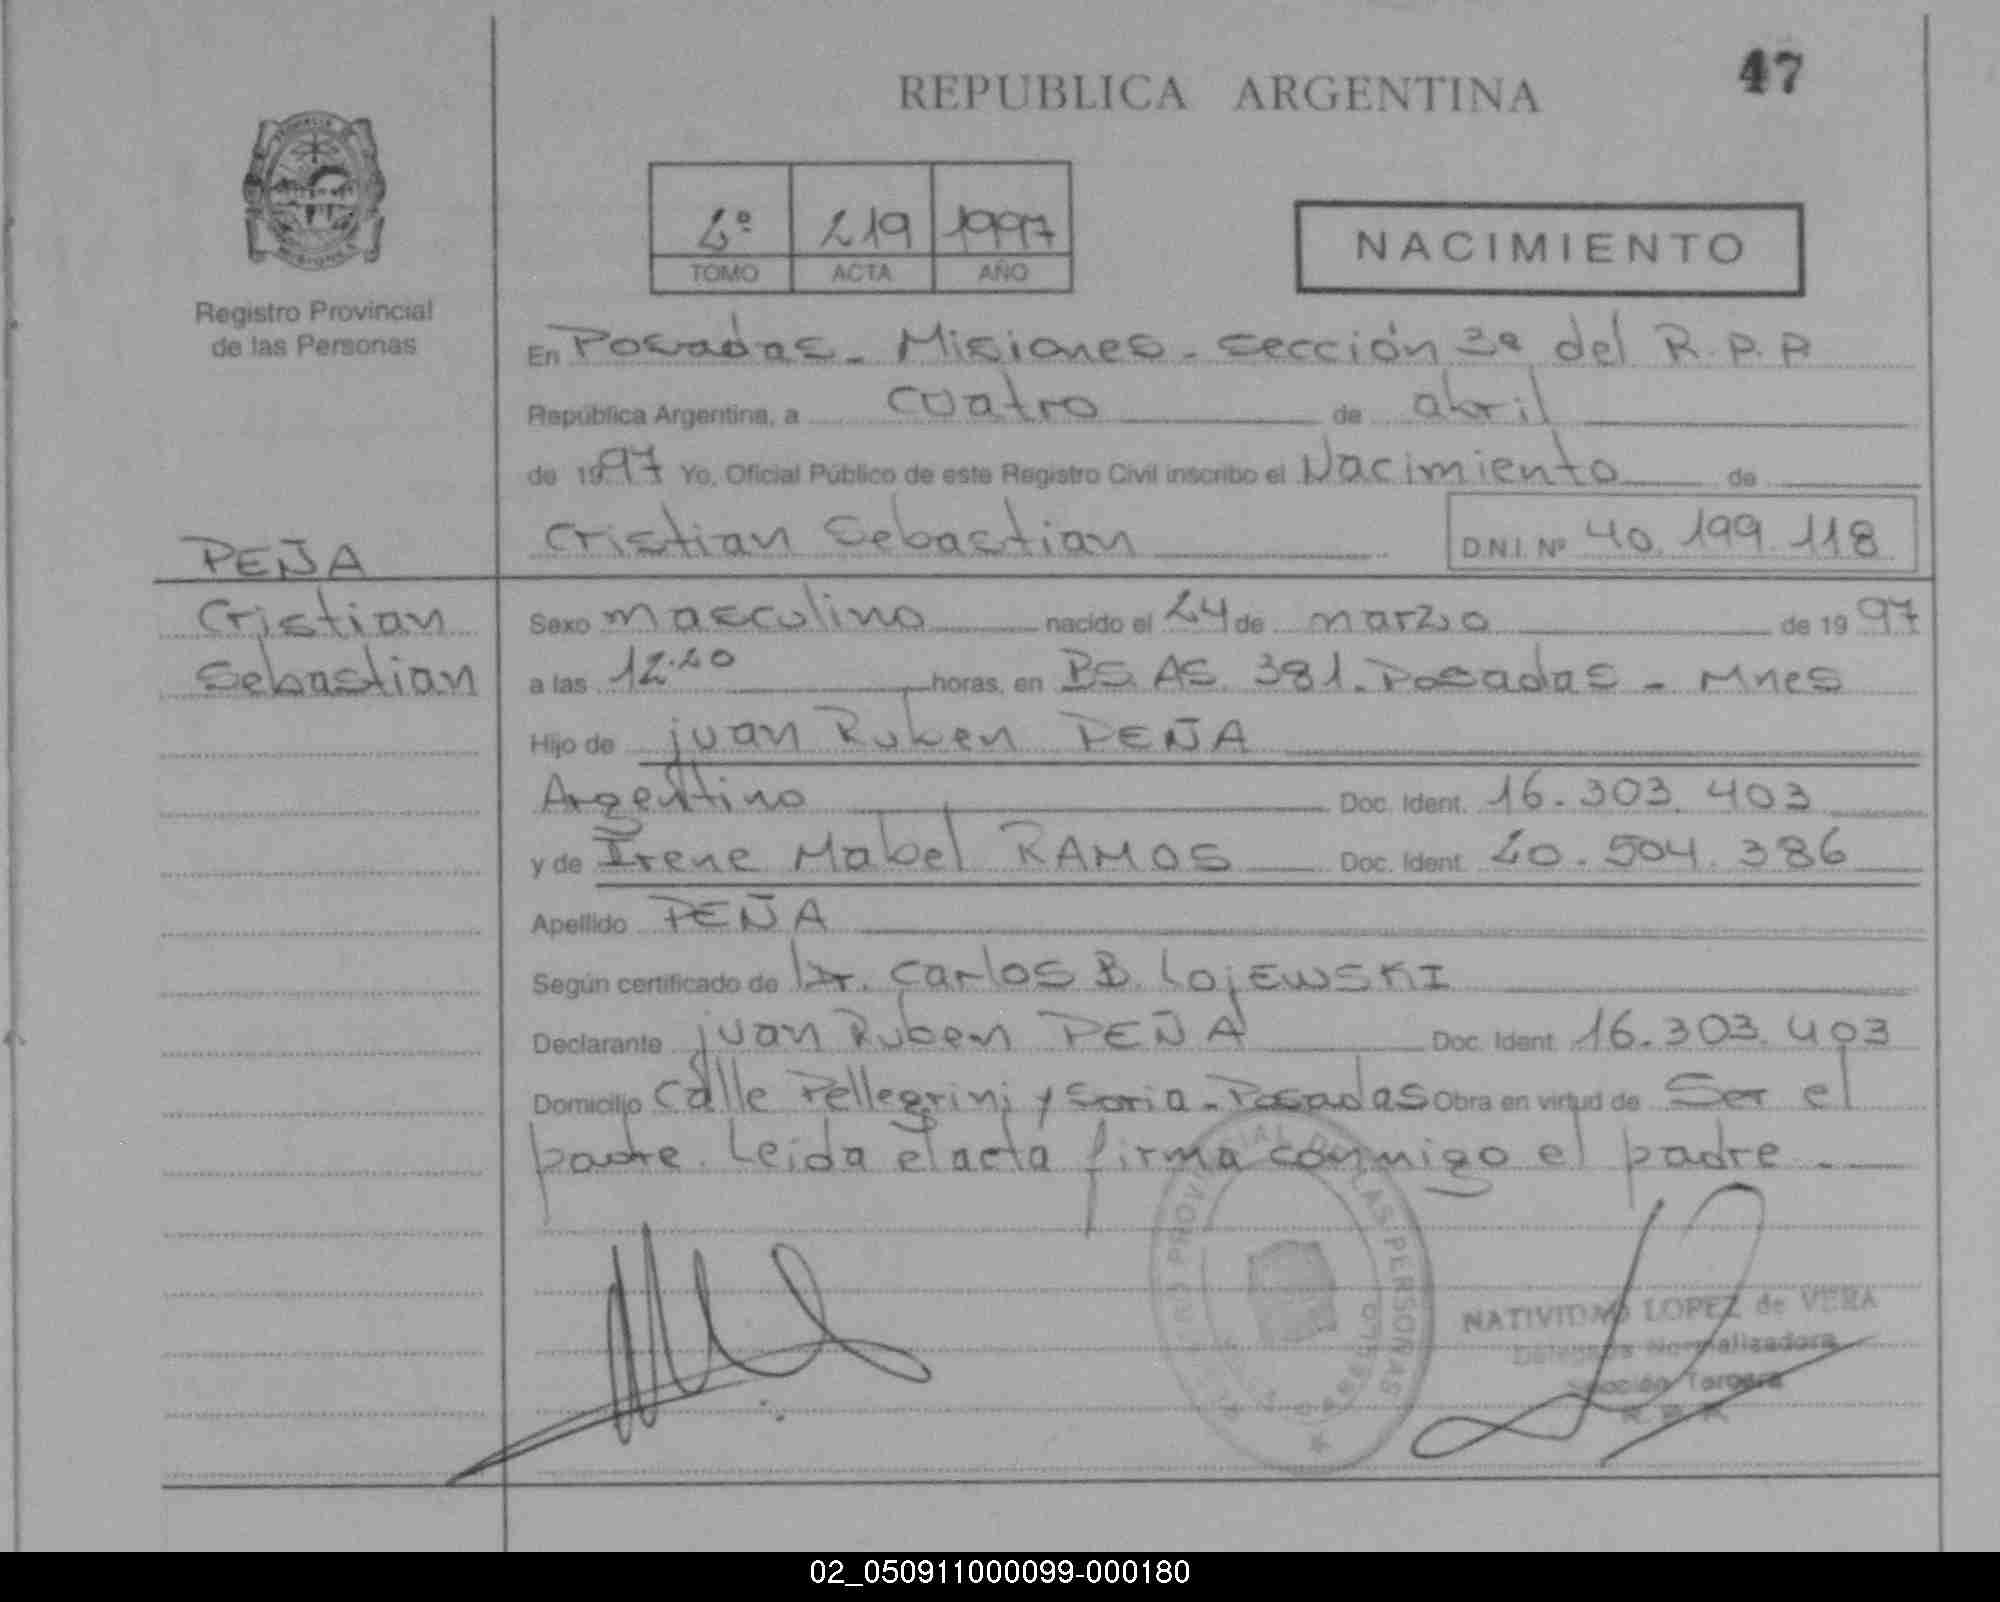 47
REPUBLICA ARGENTINA
2º 219 1997
TOMO ACTA AÑO
NACIMIENTO
Registro Provincial
de las Personas
En Posadas - Misiones - sección 3ª del R.P.P
República Argentina, a cuatro de abril
de 1997 Yo, Oficial Público de este Registro Civil inscribo el Nacimiento de
Cristian Sebastian D.N.I. Nº 40.199.118
PEÑA
Cristian
Sebastian
Sexo masculino nacido el 24 de marzo de 1997
a las 12.20 horas, en BS. AS. 381 - Posadas - Mnes
Hijo de juan Ruben PEÑA
Argentino Doc. Ident. 16.303.403
y de Irene Mabel RAMOS Doc. Ident. 20.504.386
Apellido PEÑA
Según certificado de Dr. Carlos B. LojEWSKI
Declarante juan Ruben PEÑA Doc. Ident. 16.303.403
Domicilio Calle Pellegrini y Soria - Posadas Obra en virtud de Ser el
padre. Leida el acta firma conmigo el padre . —
PROVINCIAL DE LAS PERSONAS
NATIVIDAD LOPEZ de VERA
Delegada Normalizadora
Sección Tercera
02_050911000099-000180